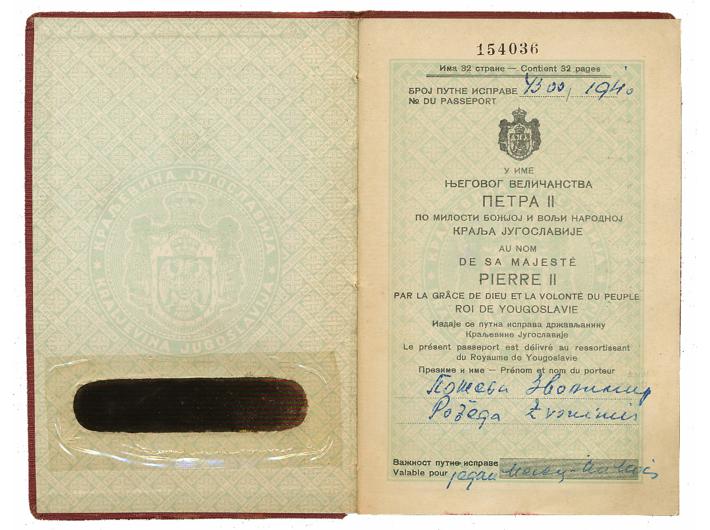 КРАЉЕВИНА ЈУГОСЛАВИЈА
154036
Има 32 стране — Contient 32 pages
БРОЈ ПУТНЕ ИСПРАВЕ 4300, 1940
№ DU PASSEPORT
У ИМЕ
ЊЕГОВОГ ВЕЛИЧАНСТВА
ПЕТРА II
ПО МИЛОСТИ БОЖЈОЈ И ВОЉИ НАРОДНОЈ
КРАЉА ЈУГОСЛАВИЈЕ
AU NOM
DE SA MAJESTÉ
PIERRE II
PAR LA GRÂCE DE DIEU ET LA VOLONTÉ DU PEUPLE
ROI DE YOUGOSLAVIE
Издаје се путна исправа држављанину
Краљевине Југославије
Le présent passeport est délivré au ressortissant
du Royaume de Yougoslavie
Презиме и име — Prénom et nom du porteur
Звонимир
Zvonimir
Важност путне исправе
Valable pour један